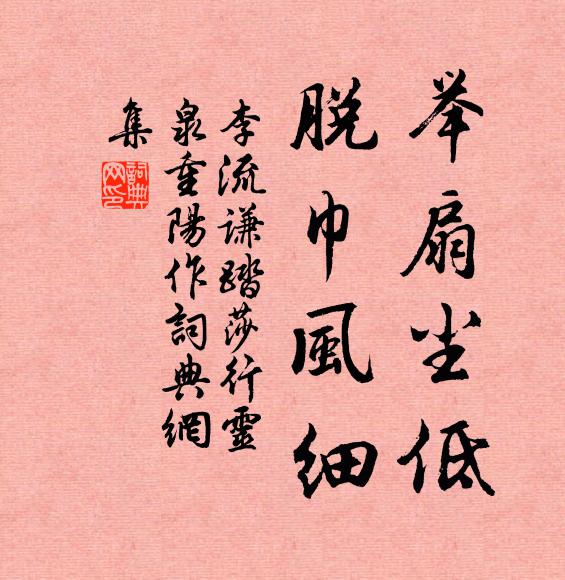 举扇尘低
脱巾風细
李流谦踏莎行靈
泉重陽作詞典網
集
詞典网印